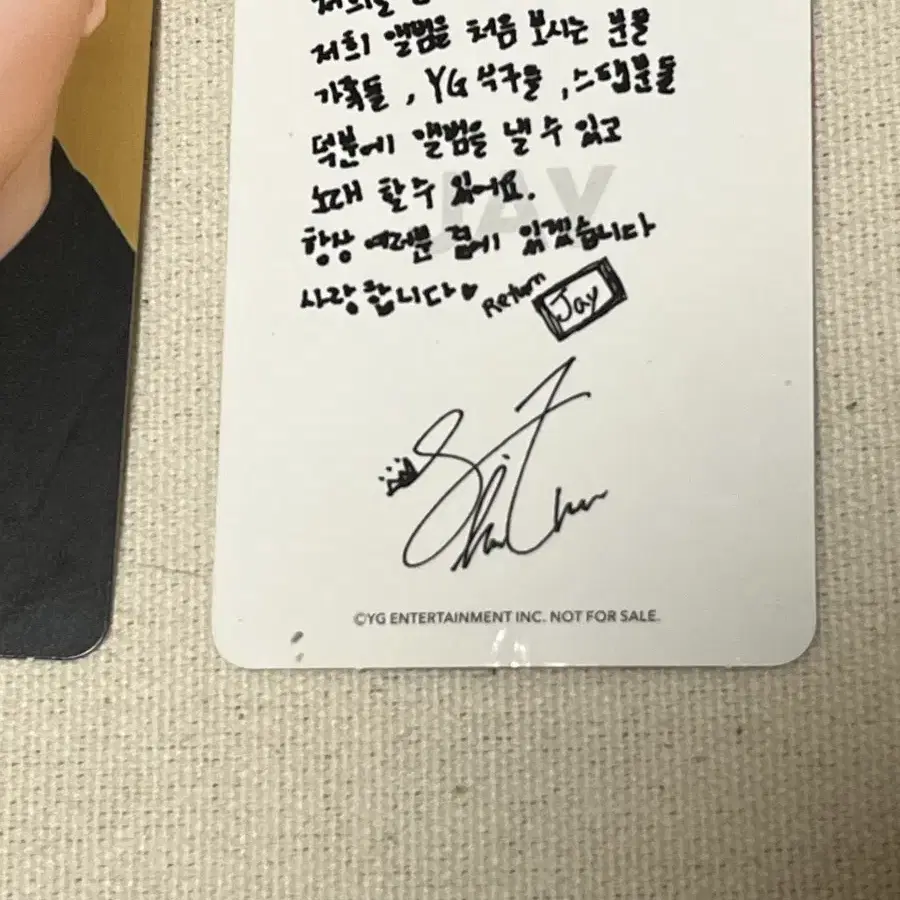 저희를
저희 앨범을 처음 보시는 분들
가족들, YG 식구들, 스탭분들
덕분에 앨범을 낼 수 있고
노래 할 수 있어요.
JAY
항상 여러분 곁에 있겠습니다
사랑합니다♥ Return Jay
©YG ENTERTAINMENT INC. NOT FOR SALE.